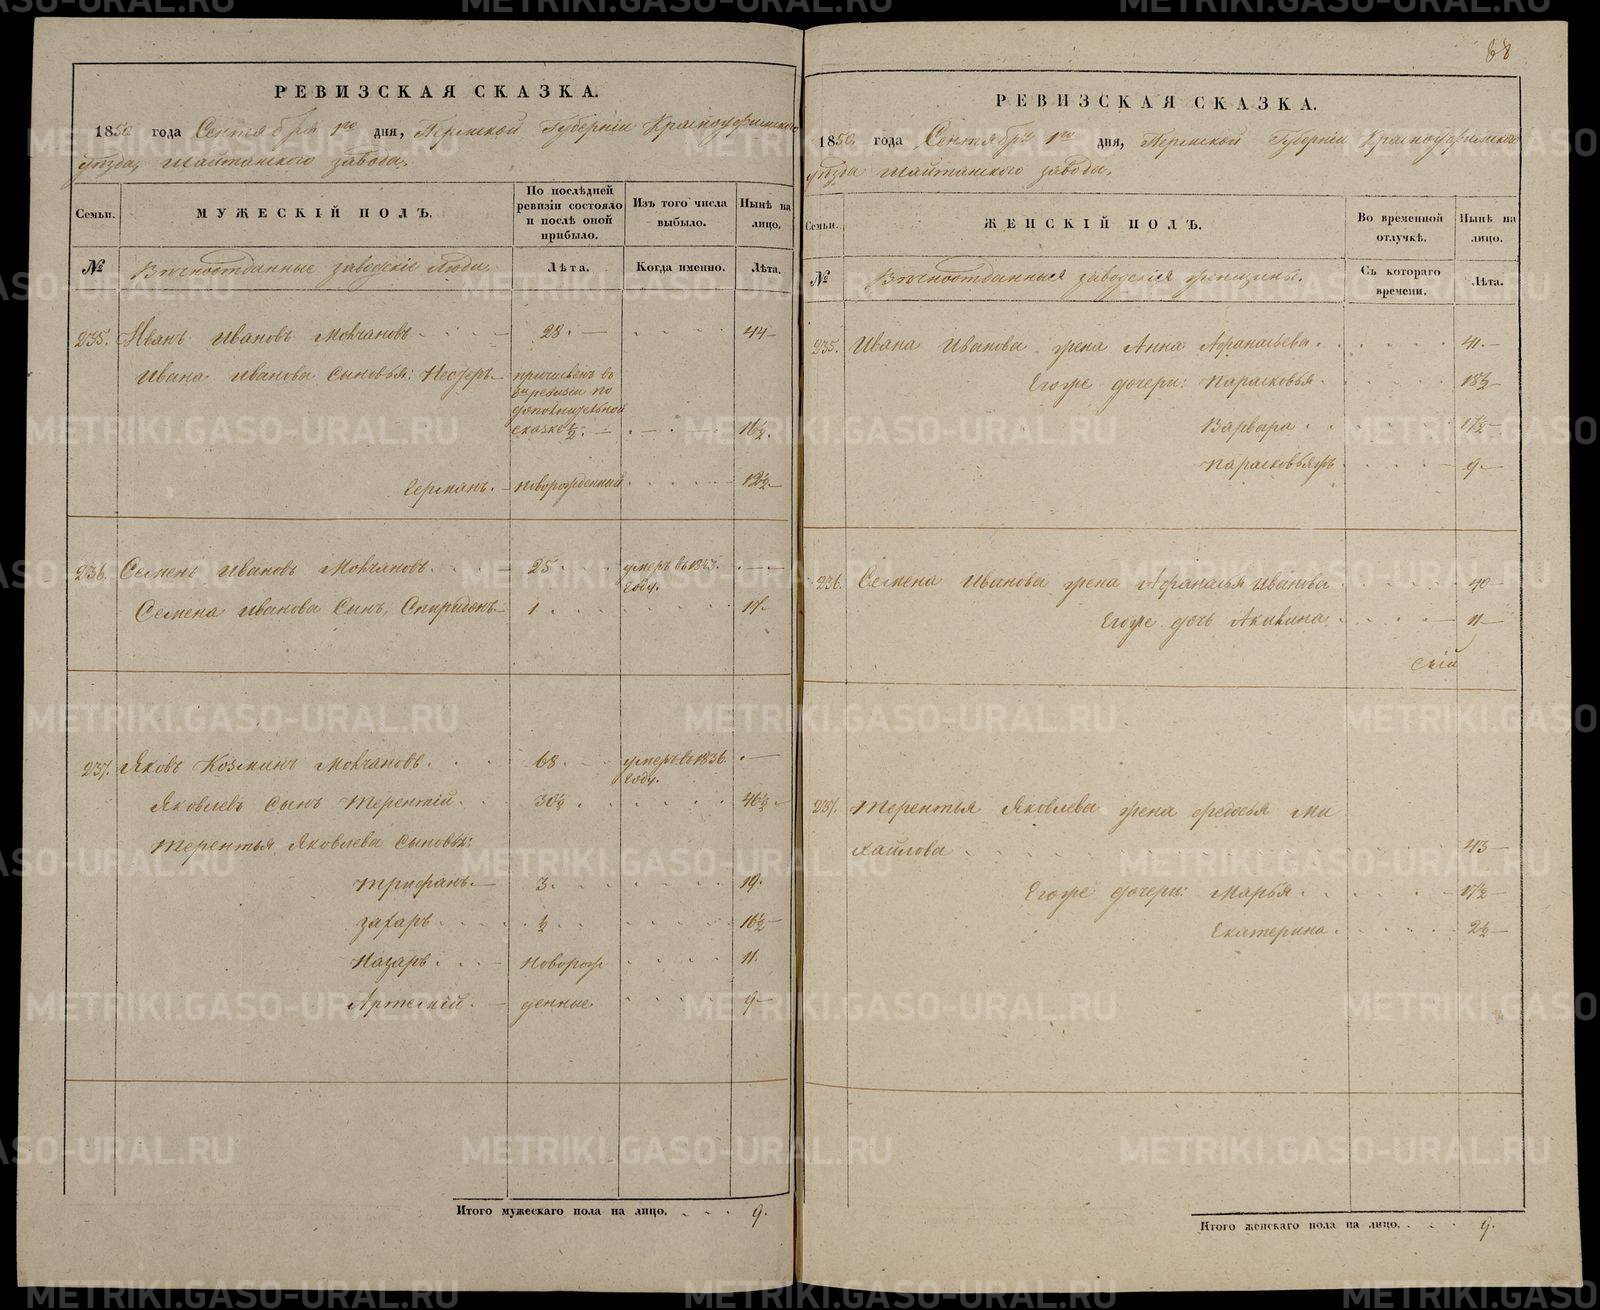 РЕВИЗСКАЯ СКАЗКА.
1850 года Сентября 1го дня, Пермской Губерніи Красноуфимскаго
уѣзда, Шайтанскаго завода.
Семьи. МУЖЕСКІЙ ПОЛЪ. По послѣдней ревизіи состояло и послѣ оной прибыло. Изъ того числа выбыло. Нынѣ на лицо.
№ Вѣчноотданные заводскіе люди. Лѣта. Когда именно. Лѣта.
235. Иванъ Ивановъ Молчановъ 28. 44
Ивана Иванова сыновья: Несторъ причисленъ въ
8й ревизіи по
дополнительной
сказкѣ ½. 16½.
Германъ. новорожденный 13½.
236. Семенъ Ивановъ Молчановъ. 25 умеръ въ
году.
Семена Иванова Сынъ, Спиридонъ 1 17.
237. Яковъ Козминъ Молчановъ. 68. умеръ въ 1836
году.
Яковлевъ сынъ Терентій. 30½. 46½
Терентья Яковлева сыновья:
Трифанъ. 3. 19.
Захаръ ½ 16½
Назаръ. новорож 11.
Артемій. денные 9
Итого мужескаго пола на лицо. 9.
88
РЕВИЗСКАЯ СКАЗКА.
1850. года Сентября 1го дня, Пермской Губерніи Красноуфимскаго
уѣзда Шайтанскаго завода.
Семьи. ЖЕНСКІЙ ПОЛЪ. Во временной отлучкѣ. Нынѣ на лицо.
№ Вѣчноотданныя заводскія женщины. Съ котораго времени. Лѣта.
235. Ивана Иванова жена Анна Афанасьева. 41.
Егоже дочери: Парасковья. 18½
Варвара 17½
Парасковьяжъ 9
236. Семена Иванова жена Афанасья Иванова 40
Егоже дочь Акилина 11
237. Терентья Яковлева жена Федосья Ми
хайлова 43
Егоже дочери: Марья 17½
Екатерина. 2½
Итого женскаго пола на лицо. 9.
METRIKI.GASO-URAL.RU